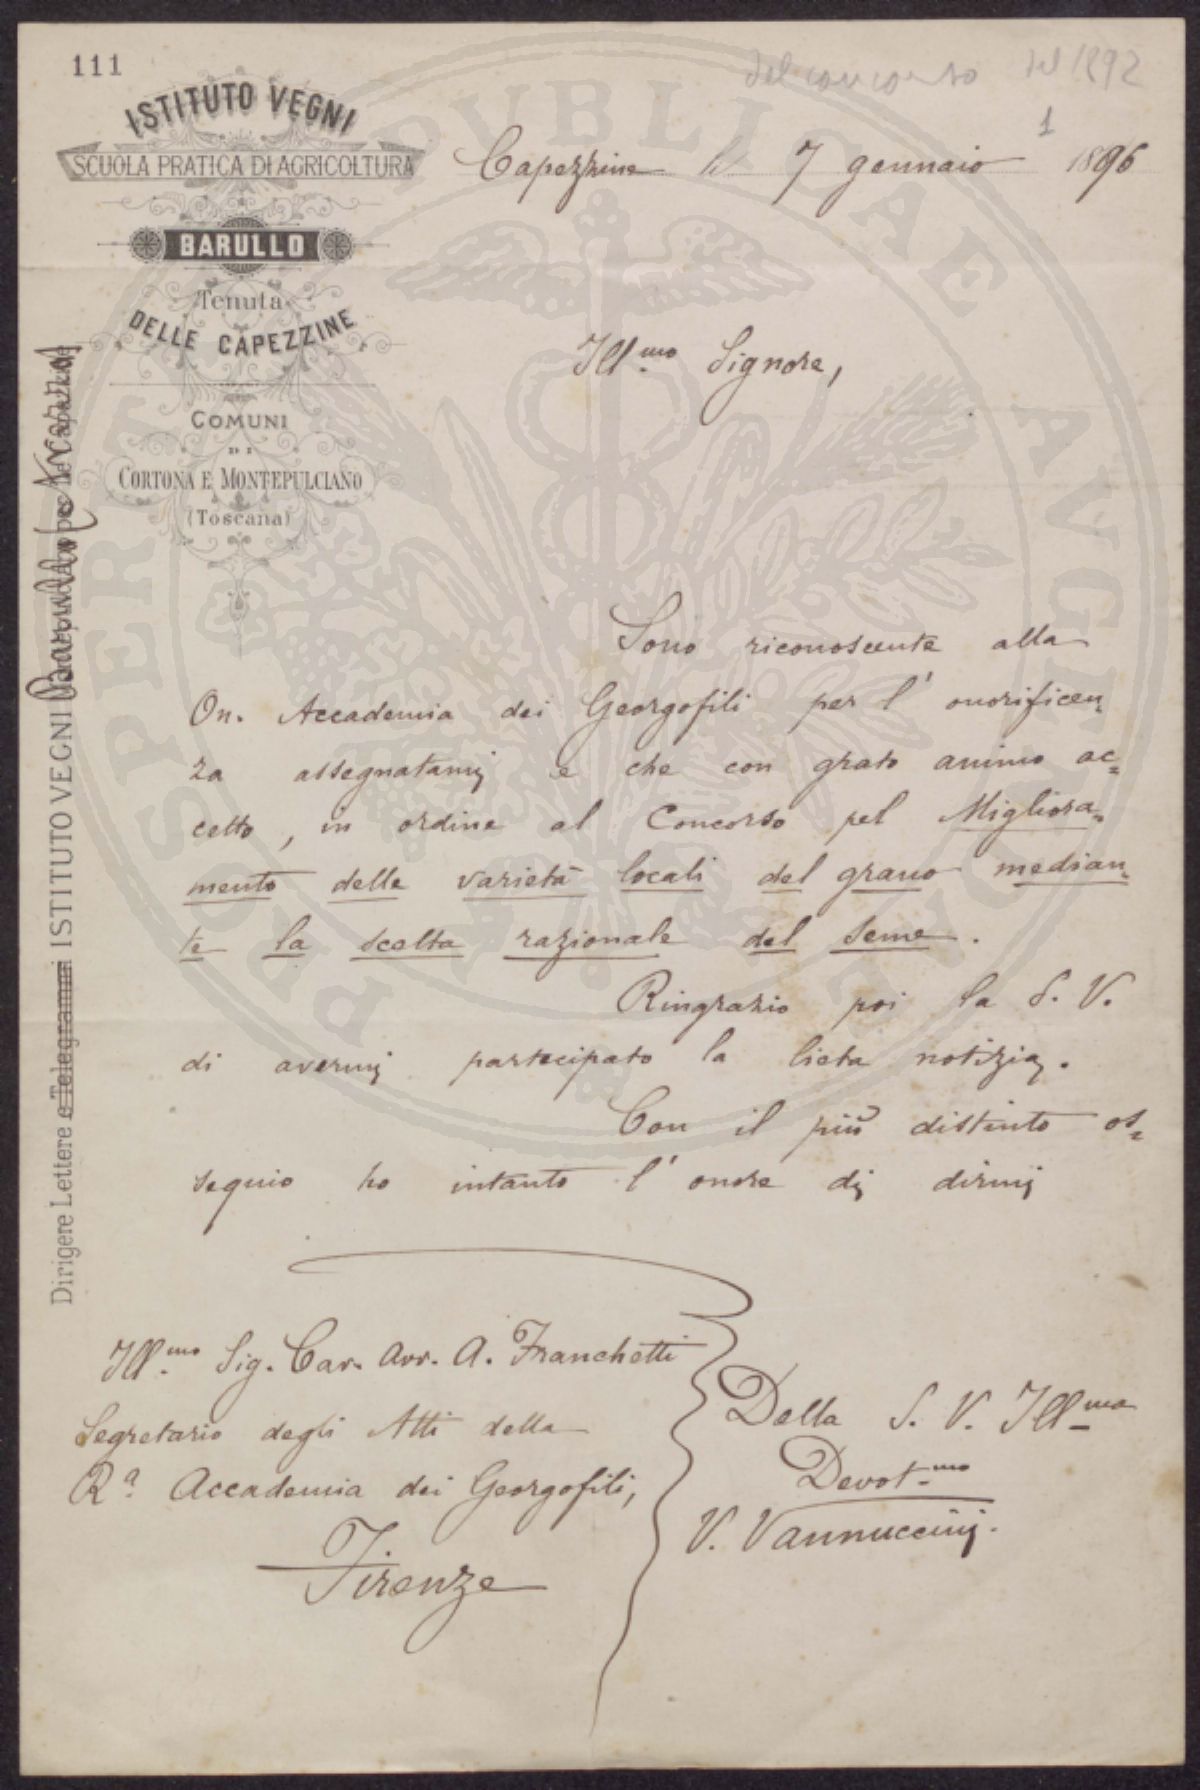 111
del concorso del 1892
1
ISTITUTO VEGNI
SCUOLA PRATICA DI AGRICOLTURA
BARULLO
Tenuta
DELLE CAPEZZINE
COMUNI
DI
CORTONA E MONTEPULCIANO
(Toscana)
Capezzine li 7 gennaio 1896
Ill.mo Signore,
Sono riconoscente alla
On. Accademia dei Georgofili per l'onorificen=
za assegnatami e che con grato animo ac=
cetto, in ordine al Concorso pel Migliora=
mento delle varietà locali del grano median=
te la scelta razionale del seme.
Ringrazio poi la S. V.
di avermi partecipato la lieta notizia.
Con il più distinto os=
sequio ho intanto l'onore di dirmi
Ill.mo Sig. Cav. Avv. A. Franchetti
Segretario degli Atti della
R.a Accademia dei Georgofili,
Firenze
Della S. V. Ill.ma
Devot.mo
V. Vannuccini.
Dirigere Lettere e Telegrammi ISTITUTO VEGNI
PROSPERITATI PUBLICAE AVGENDAE